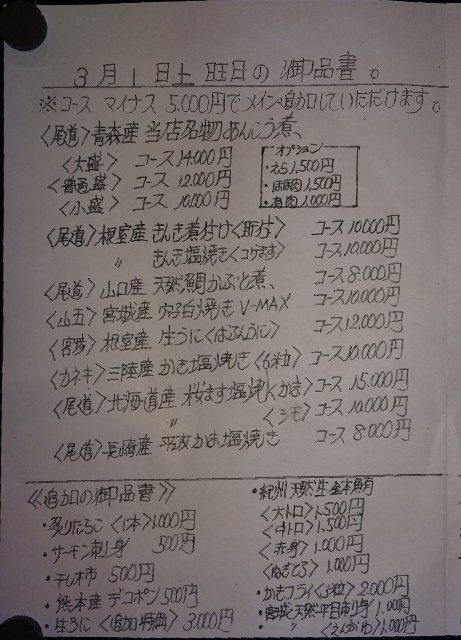 3月1日土曜日の御品書。
※コース マイナス 5.000円でメイン追加していただけます。
〈尾道〉青森産 当店名物あんこう煮、
〈大盛〉 コース14.000円
〈普通盛〉 コース 12.000円
〈小盛〉 コース 10.000円
オプション
・えら1,500円
・ほほ肉1,500円
・身肉1.000円
〈尾道〉根室産 きんき煮付け〈肝付〉 コース10000円
〃 きんき塩焼き〈コゲます〉 コース10.000円
〈尾道〉山口産 天然鯛かぶと煮、 コース8.000円
〈山五〉宮城産 穴子白焼き V-MAX コース10.000円
〈宮弥〉根室産 生うに〈ばふんうに〉 コース12.000円
〈カネキ〉三陸産 かき塩焼き〈6粒〉 コース10.000円
〈尾道〉北海道産 桜ます塩焼〈かま〉 コース 15.000円
〃 〈シモ〉 コース 10.000円
〈尾道〉長崎産 平政かま塩焼き コース 8.000円
《追加の御品書》
・炙りたらこ〈1本〉1.000円
・サーモン刺し身 500円
・干し柿 500円
・熊本産 デコポン 500円
・生うに〈追加特価〉 3.000円
・紀州 天然生本鮪
〈大トロ〉1,500円
〈中トロ〉1,500円
〈赤身〉1.000円
〈ねぎとろ〉1,000円
・かきフライ〈3粒〉2.000円
・宮城天然平目刺り身1.000円
・ 〃 〈えんがわ〉1.000円